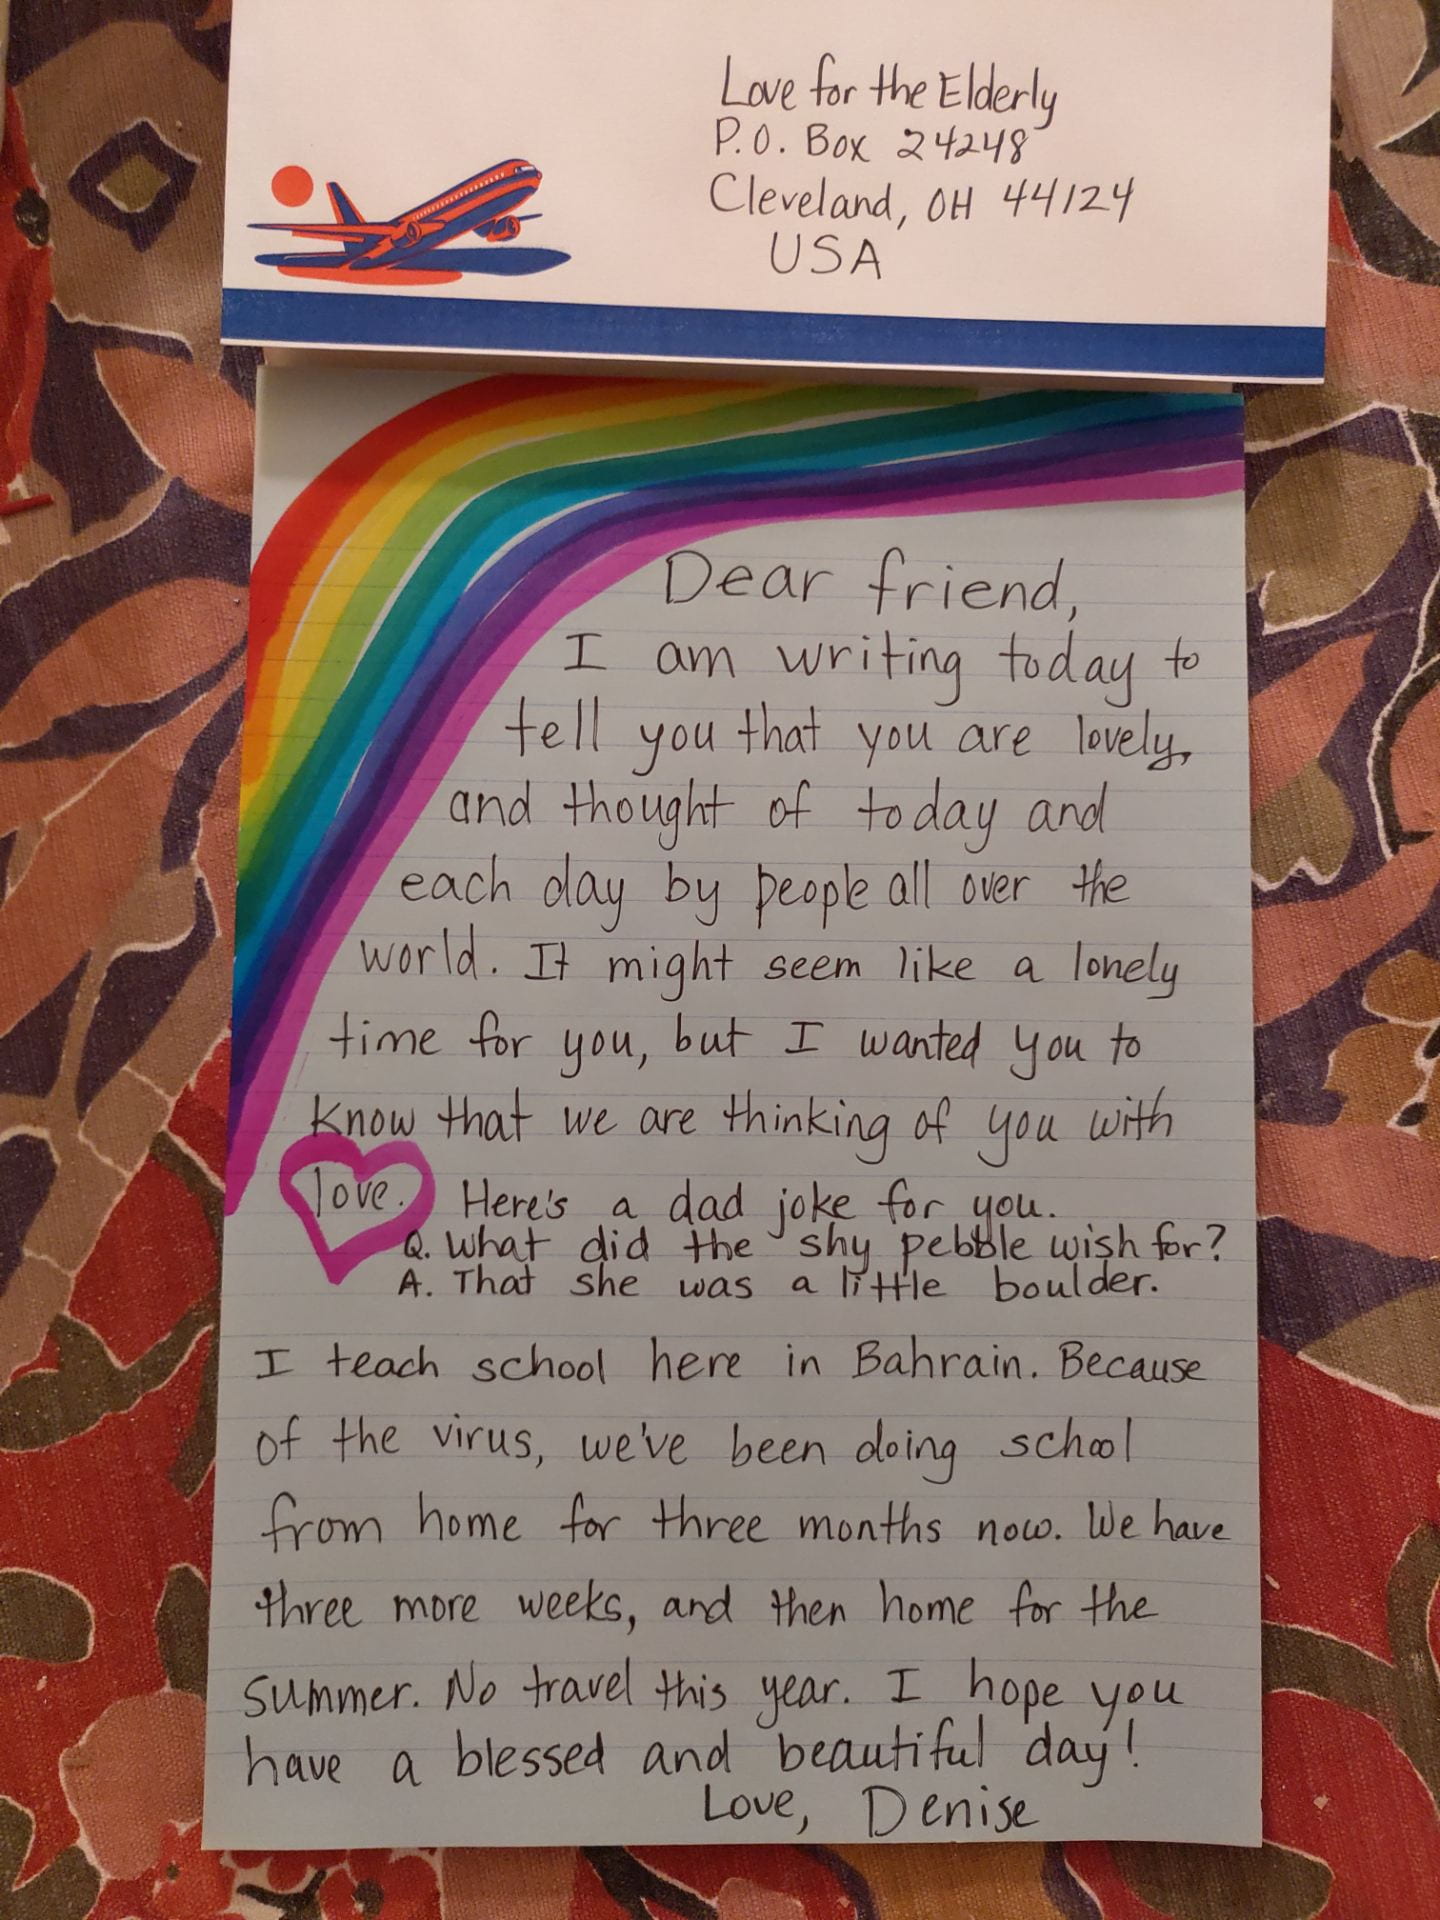 Love for the Elderly
P.O. Box 24248
Cleveland, OH 44124
USA
Dear friend,
I am writing today to
tell you that you are lovely,
and thought of today and
each day by people all over the
world. It might seem like a lonely
time for you, but I wanted you to
know that we are thinking of you with
love. Here's a dad joke for you.
Q. What did the shy pebble wish for?
A. That she was a little boulder.
I teach school here in Bahrain. Because
of the virus, we've been doing school
from home for three months now. We have
three more weeks, and then home for the
summer. No travel this year. I hope you
have a blessed and beautiful day!
Love, Denise